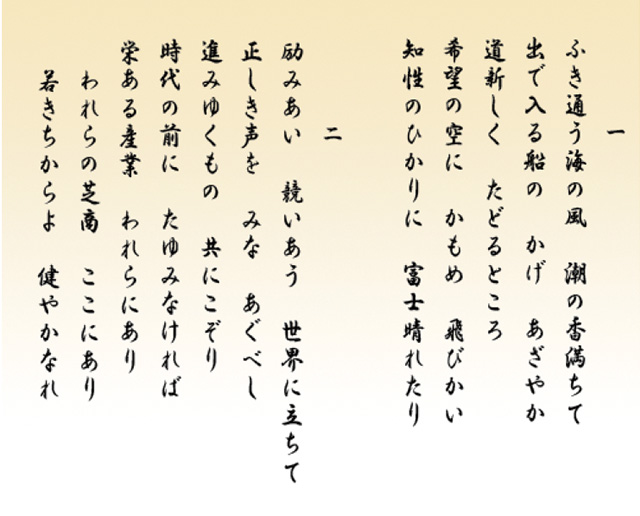 一
ふき通う海の風　潮の香満ちて
出で入る船の　かげ　あざやか
道新しく　たどるところ
希望の空に　かもめ　飛びかい
知性のひかりに　富士晴れたり
二
励みあい　競いあう　世界に立ちて
正しき声を　みな　あぐべし
進みゆくもの　共にこぞり
時代の前に　たゆみなければ
栄ある産業　われらにあり
われらの芝商　ここにあり
若きちからよ　健やかなれ